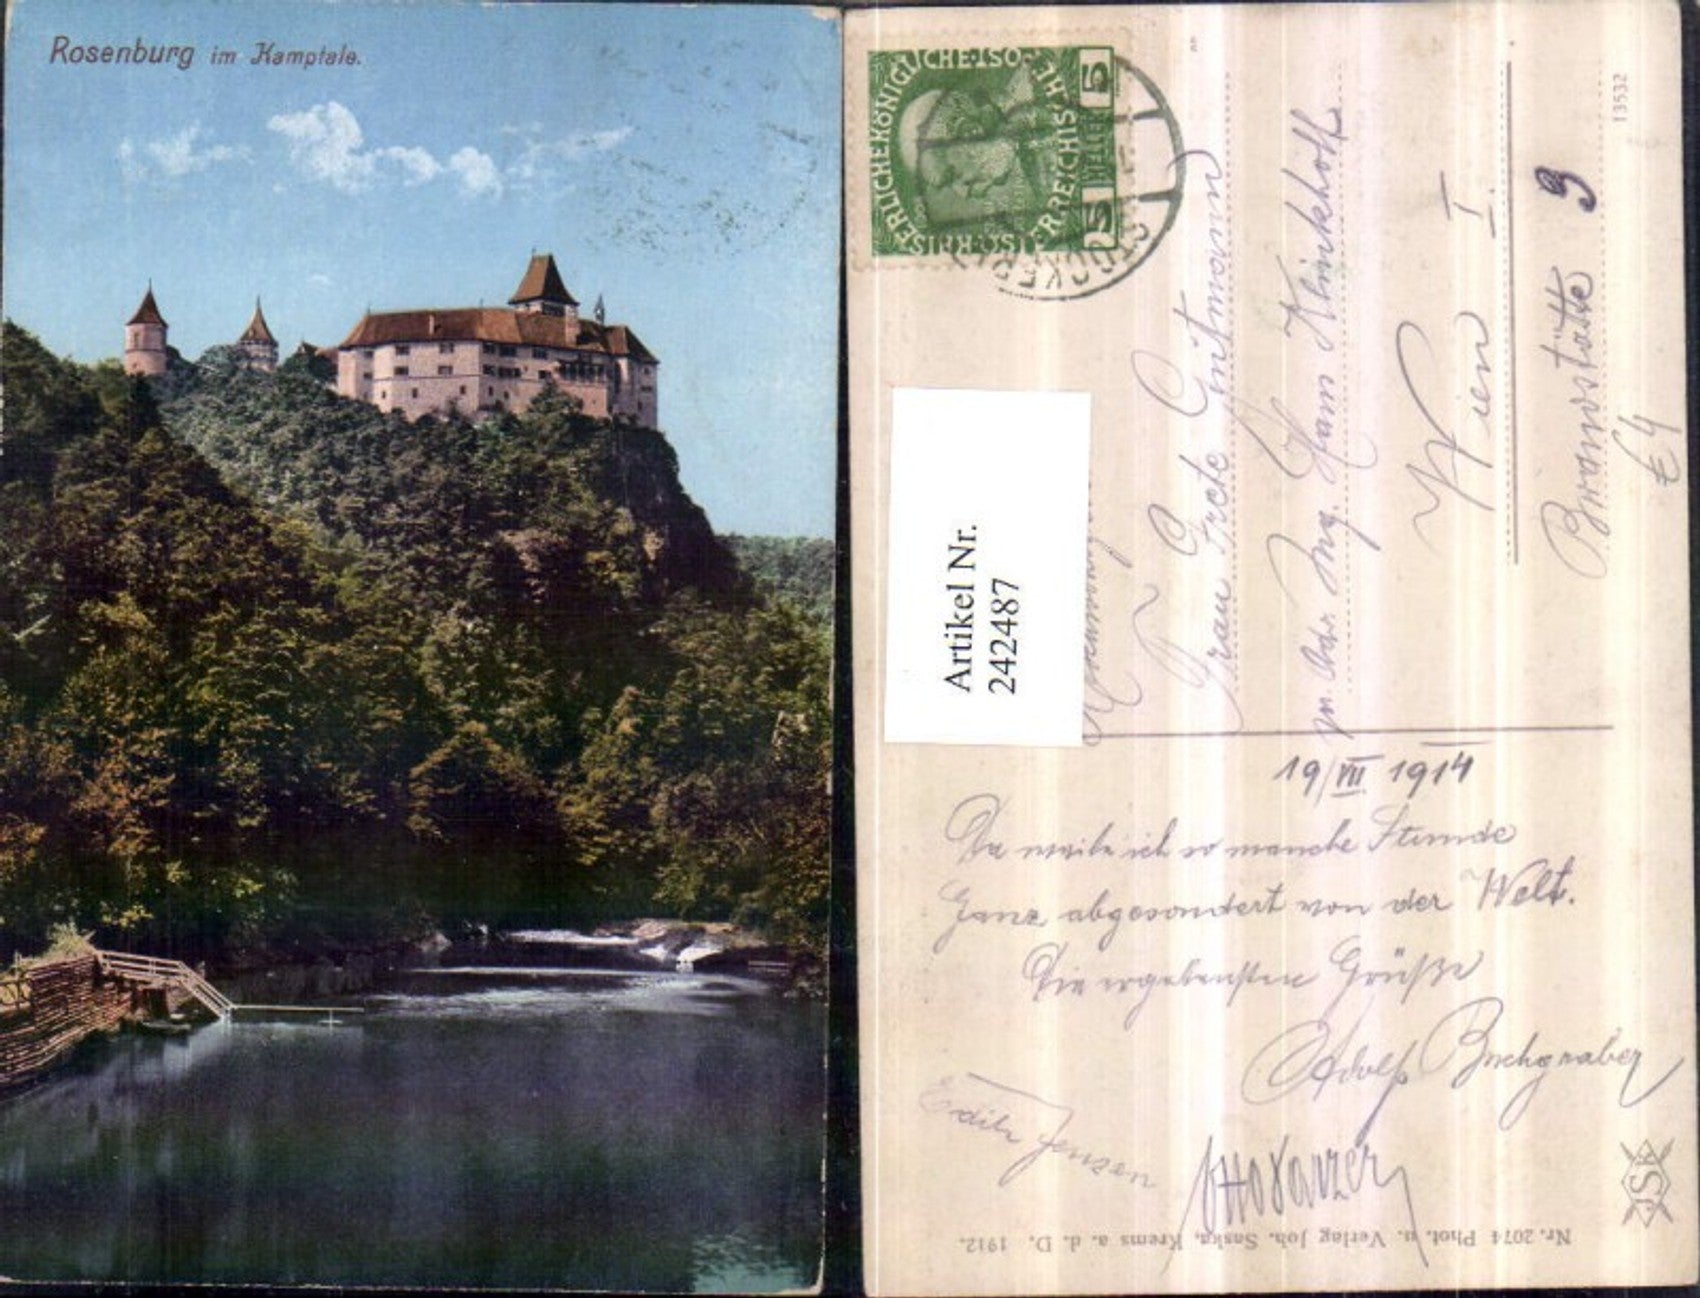 Rosenburg im Kamptale.
KAISERLICHE KÖNIGLICHE
ÖSTERREICHISCHE
5 HELLER 5
STOCKERAU
13532
Artikel Nr.
242487
Frau Grete
per Adr. Ing. Hans Klinkhoth
Wien I.
Brandstätte 9
£4
19/VII 1914
Da weile ich so manche Stunde
Ganz abgesondert von der Welt.
Die ergebensten Grüße
Adolf Buchgraber
Edith Jenzen
Otto
Nr. 2074 Phot. u. Verlag Joh. Saska, Krems a. d. D. 1912.